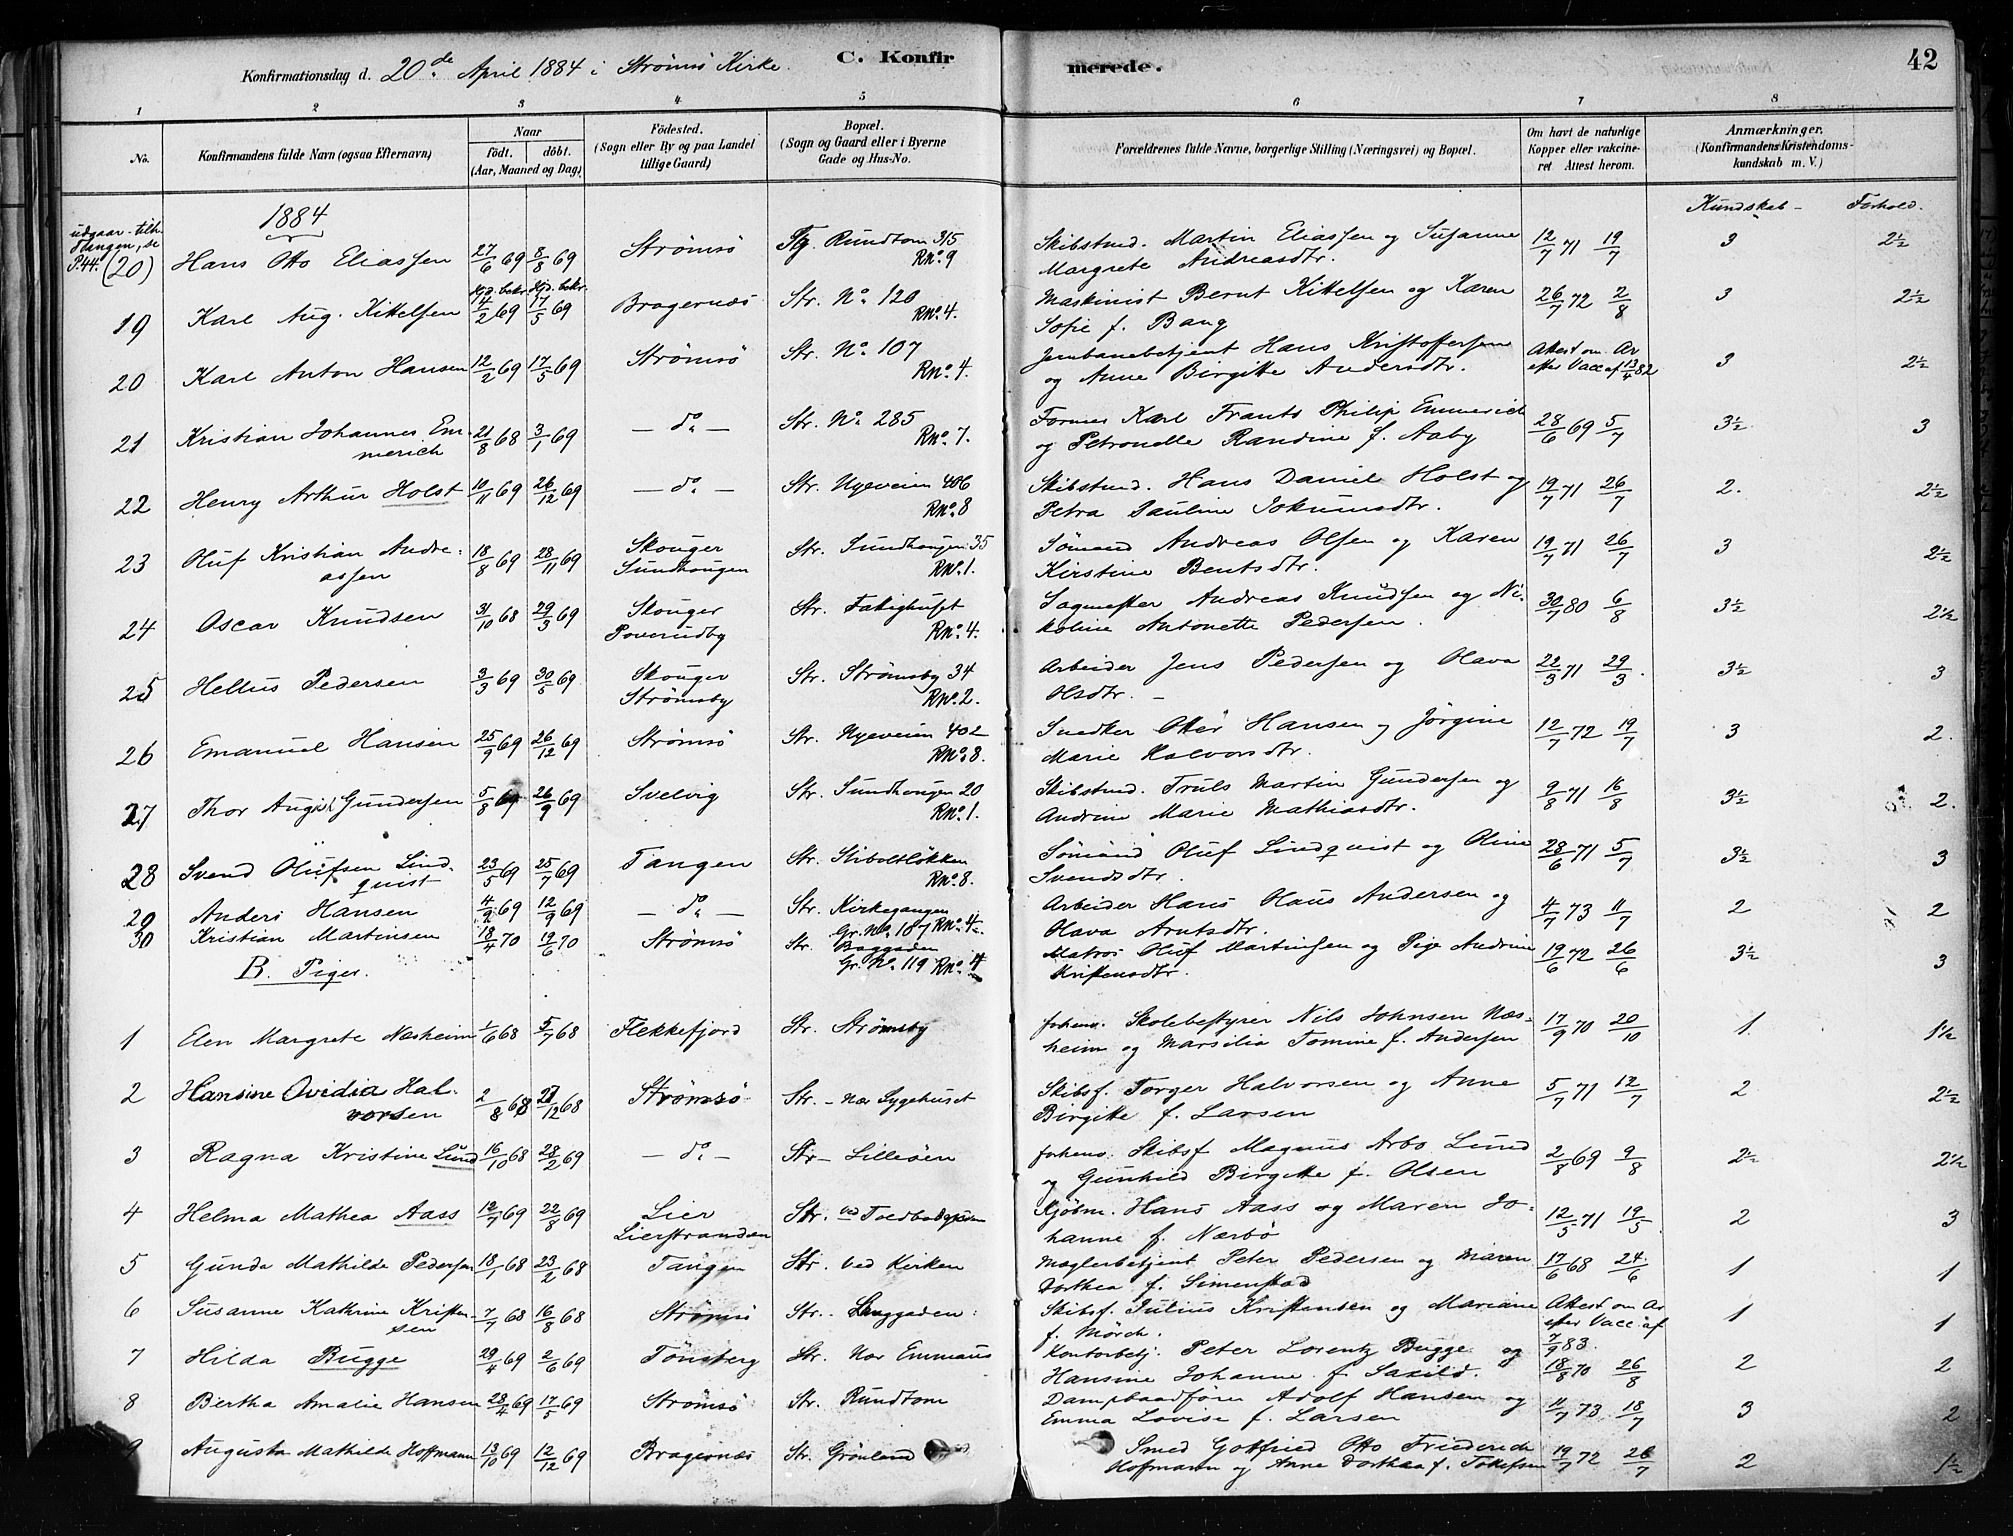 Konfirmationsdag d. 20de April 1884 i Strömsö Kirke. C. Konfirmerede. 42
1 2 3 4 5 6 7 8
No. Konfirmandens fulde Navn (ogsaa Efternavn) Naar födt. döbt. (Aar, Maaned og Dag) Födested. (Sogn eller By og paa Landet tillige Gaard) Bopæl. (Sogn og Gaard eller i Byerne Gade og Hus-No. Forældrenes fulde Navne, borgerlige Stilling (Næringsvei) og Bopæl. Om havt de naturlige Kopper eller vakcineret Attest herom. Anmærkninger. (Konfirmandens Kristendomskundskab m. V.)
Kundskab - Forhold.
1884
udgaar - tilh. Tangen, se P.44. (20) Hans Otto Eliassen 27/6 69 8/8 69 Strömsö Tg. Rundtom 315 RNo. 9 Skibstmd. Martin Eliassen og Susanne Margrete Andreasdtr. 12/7 71 19/7 3 2½
19 Karl Aug. Kittelsen 14/2 69 17/5 69 Bragernæs Str. No. 120 RNo. 4. Maskinist Bernt Kittelsen og Karen Sofie f. Bang 26/7 72 2/8 3 2½
20 Karl Anton Hansen 12/2 69 17/5 69 Strömsö Str. No. 107 RNo. 4. Jernbanebetjent Hans Kristofersen og Anne Birgitte Andersdtr. Attest om Ar efter Vacc af 13/4 82 3 2½
21 Kristian Johannes Emmerich 21/8 68 3/1 69 - do - Str. No. 285 RNo. 7. Former Karl Frants Philip Emmerich og Petronelle Randine f. Aaby 28/6 69 5/7 3½ 3
22 Henry Arthur Holst 10/11 69 26/12 69 - do - Str. Nyeveien 406 RNo. 8 Skibstmd. Hans Daniel Holst og Petra Pauline Jokumsdtr. 19/7 71 26/7 2. 2½
23 Oluf Kristian Andreassen 18/8 69 28/11 69 Skouger Sundhougen Str. Sundhougen 35 RNo. 1. Sömand Andreas Olsen og Karen Kirstine Bentsdtr. 19/7 71 26/7 3 2½
24 Oscar Knudsen 31/10 68 29/3 69 Skouger Poverudby Str. Fattighuset RNo. 4. Sagmester Andreas Knudsen og Nikoline Antonette Pedersen. 30/7 80 6/8 3½ 2½
25 Hellus Pedersen 3/3 69 30/5 69 Skouger Strömsby Str. Strömsby 34 RNo. 2. Arbeider Jens Pedersen og Olava Olsdtr. - 22/3 71 29/3. 3½ 3
26 Emanuel Hansen 25/9 69 26/12 69 Strömsö Str. Nyeveien 402 RNo. 8. Snedker Otter Hansen og Jörgine Marie Halvorsdtr. 12/7 72 19/7 3 2.
27 Thor August Gundersen 5/8 69 26/9 69 Svelvig Str. Sundhougen 20 RNo. 1. Skibstmd. Truls Martin Gundersen og Andrine Marie Mathiasdtr. 9/8 71 16/8 3½ 2.
28 Svend Olufsen Lindquist 23/5 69 25/7 69 Tangen Str. Stiboltlökken RNo. 8. Sömand Oluf Lindquist og Oline Svendsdtr. 28/6 71 5/7 3½ 3
29 Anders Hansen 4/2 69 12/9 69 - do - Str. Kirkegangen Gr. No. 187 RNo. 4. Arbeider Hans Andersen og Olava Arntsdtr. 4/7 73 11/7 2 2
30 Kristian Martinsen 18/4 70 19/6 70 Strömsö Str. Baggaden Gr. No. 119 RNo. 4 Matros Oluf Martinsen og Pige Andrine Kristensdtr. 19/6 72 26/6 3½ 3
B. Piger.
1 Elen Margrete Næsheim 1/6 68 5/7 68 Flekkefjord Str. Strömsby forhenv. Skolebestyrer Nils Johnsen Næsheim og Marsilia Tomine f. Andersen 17/9 70 20/10 1 1½
2 Hansine Ovidia Halvorsen 2/8 68 27/12 68 Strömsö Str. - nær Sygehuset Skibsf. Torger Halvorsen og Anne Birgitte f. Larsen 5/7 71 12/7 2 2½
3 Ragna Kristine Lund 16/10 68 28/2 69 - do - Str - Lilleöen forhenv. Skibsf Magnus Arbo Lund og Gunhild Birgitte f. Olsen 2/8 69 9/8 2½ 2½
4 Helma Mathea Aass 12/7 69 22/8 69 Lier Lierstranden Str. ved Toldbod Kjöbm. Hans Aass og Maren Johanne f. Nærbö 12/5 71 19/5 2 3
5 Gunda Mathilde Pedersen 18/1 68 23/2 68 Tangen Str. ved Kirken Mæglerbetjent Peter Pedersen og Maren Dorthea f. Simenstad 17/6 68 24/6 1 1
6 Susanne Kathrine Kristensen 7/7 68 16/8 68 Strömsö Str. Langgaden Skibsf. Julius Kristensen og Mariane f. Mörch. Attest om Ar efter Vacc af 7/9 83. 1 1
7 Hilda Bugge 29/4 69 2/6 69 Tönsberg Str. nær Emmaus Kontorbetj. Peter Lorentz Bugge og Hansine Johanne f. Saxild. 18/8 70 26/8 2 2
8 Bertha Amalie Hansen 28/4 69 17/5 69 Strömsö Str. Rundtom Dampbaadförer Adolf Hansen og Emma Lovise f. Larsen 11/7 73 18/7 3 2
9 Augusta Mathilde Hoffmann 13/10 69 12/12 69 Bragernæs Str. Grönland Smed Gotfried Otto Friederich Hoffmann og Anne Dorthea f. Tollefsen 19/7 72 26/7 2 1½